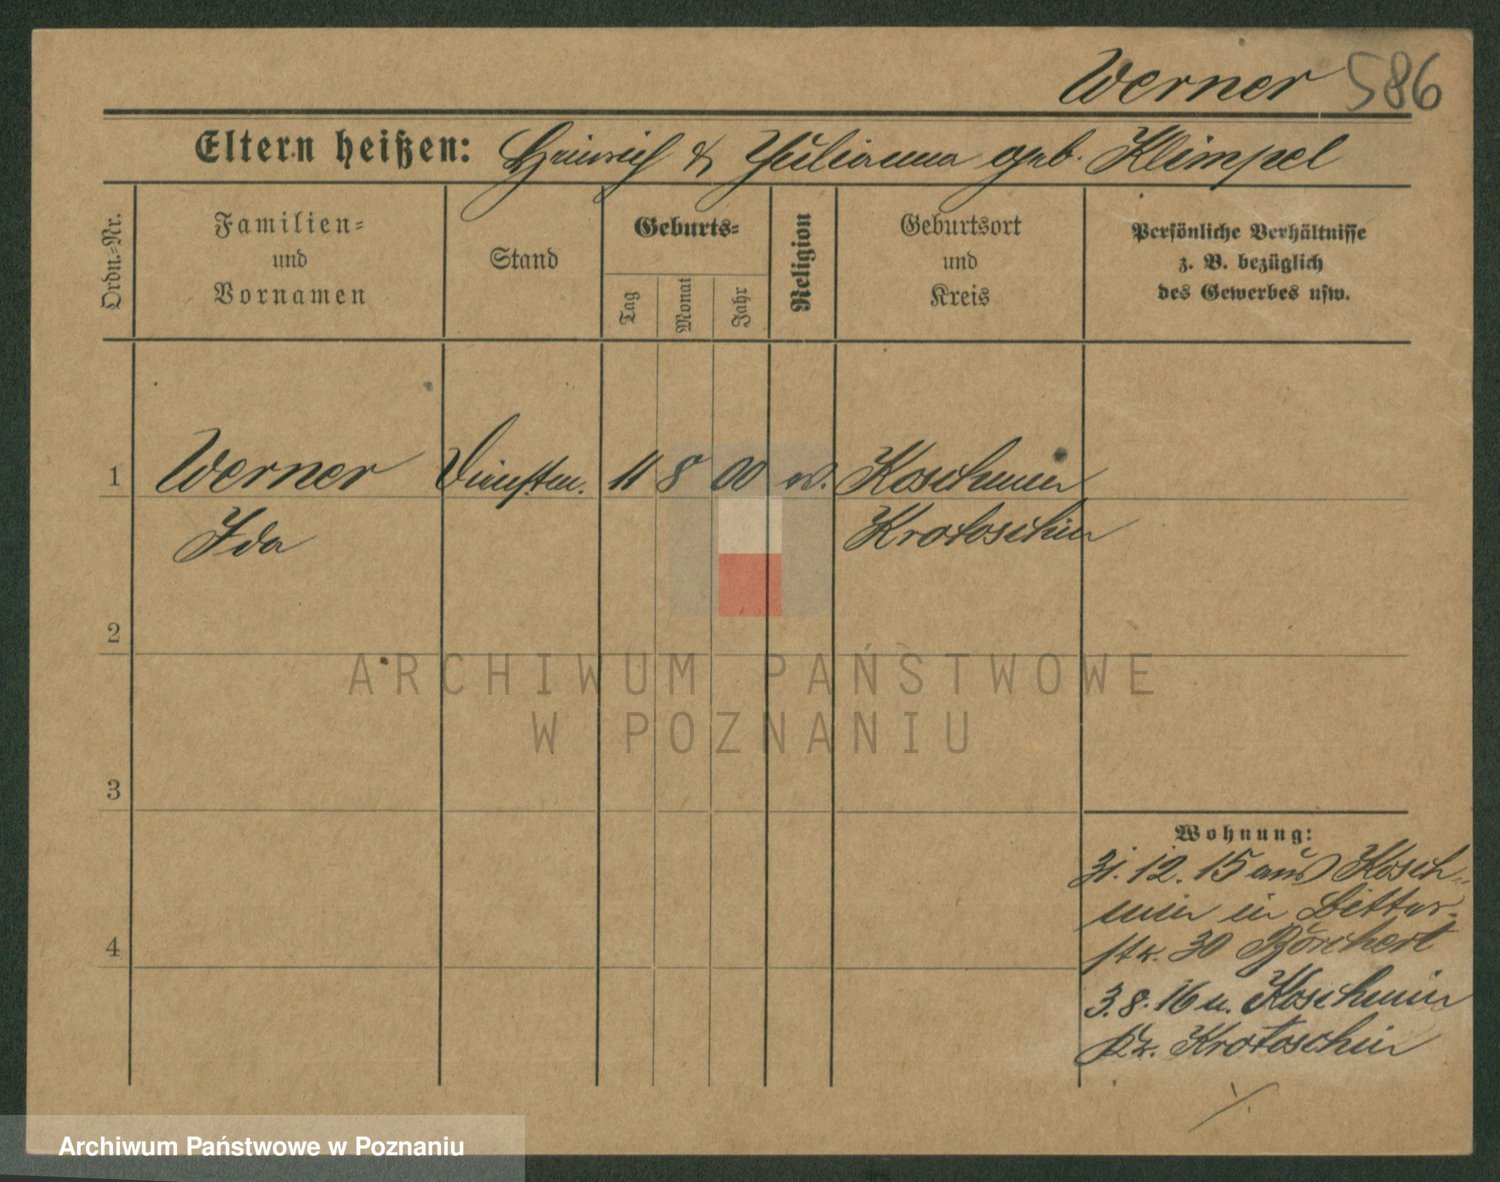 Werner 586
Eltern heißen: Heinrich & Julianna geb. Klimpel
Ordn.-Nr.
Familien-
und
Vornamen
Stand
Geburts-
Tag
Monat
Jahr
Religion
Geburtsort
und
Kreis
Persönliche Verhältnisse
z. B. bezüglich
des Gewerbes usw.
1 Werner Dienstm. 11 8 00 ev. Koschmin
Ida Krotoschin
2
ARCHIWUM PAŃSTWOWE
W POZNANIU
3
Wohnung:
31. 12. 15 aus Kosch-
min in Bitter-
4 str. 30 Borchert
3. 8. 16 n. Koschmin
Kr. Krotoschin
Archiwum Państwowe w Poznaniu